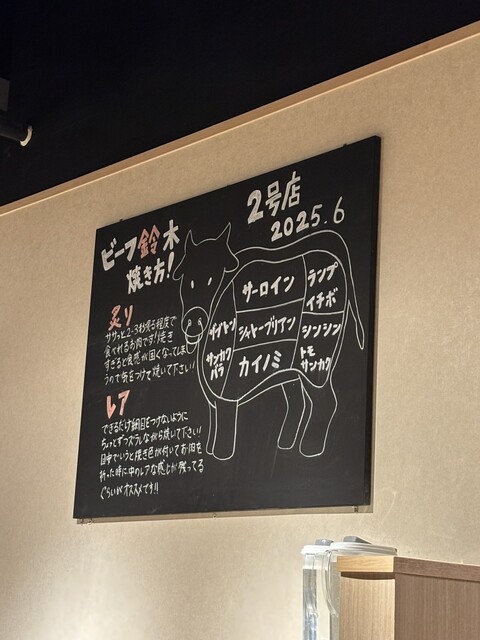 ビーフ鈴木
焼き方!
2号店
2025.6
炙り
ササッと2~3秒炙る程度で
食べれるお肉です!!焼き
すぎると食感が固くなってしまう
ので気をつけて焼いて下さい!
レア
できるだけ網目をつけないように
ちょっとずつズラしながら焼いて下さい!
目安でいうと焼き色が付いてお肉を
折った時に中のレアな感じが残ってる
ぐらいがオススメです!!
サーロイン
ランプ
イチボ
ザブトン
シャトーブリアン
シンシン
サンカク
バラ
カイノミ
トモ
サンカク